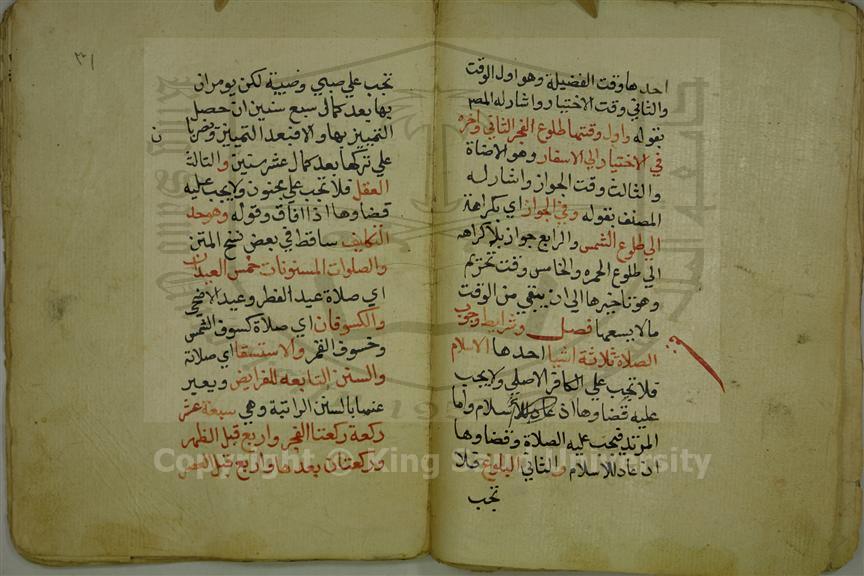 احدها وقت الفضيلة وهو اول الوقت
والثاني وقت الاختيار واشار له المص
بقوله واول وقتها طلوع الفجر الثاني واخره
في الاختيار الي الاسفار وهو الاضاة
والثالث وقت الجواز واشار له
المصنف بقوله وفي الجواز اي بكراهة
الي طلوع الشمس والرابع جواز بلا كراهه
الي طلوع الحمره والخامس وقت تحريم
وهو تاخيرها الي ان يبقي من الوقت
مالا يسعها فصل وشرايط وجوب
الصلاة ثلاثة اشيا احدها الاسلام
فلا تجب علي الكافر الاصلي ولا يجب
عليه قضاوها اذ عاد للاسلام واما
المرتد فيجب عليه الصلاة وقضاوها
ان عاد للاسلام والثاني البلوغ فلا
تجب
٣١
تجب علي صبي وصبية لكن يومران
بها بعد كمال سبع سنين ان حصل
التمييز بها والا فبعد التمييز ويضربا
ن
علي تركها بعد كمال عشر سنين والثالث
العقل فلا تجب علي مجنون ولا يجب عليه
قضاوها اذا افاق وقوله وهو حد
التكليف ساقط في بعض نسخ المتن
والصلوات المسنونات خمس العيدان
اي صلاة عيد الفطر وعيد الاضحي
والكسوفان اي صلاة كسوف الشمس
وخسوف القمر والاستسقا اي صلاته
والسنن التابعه للفرايض ويعبر
عنها بالسنن الراتبة وهي سبعة عشر
ركعة ركعتا الفجر واربع قبل الظهر
وركعتان بعدها واربع قبل العصر
Copyright © King Saud University
1957